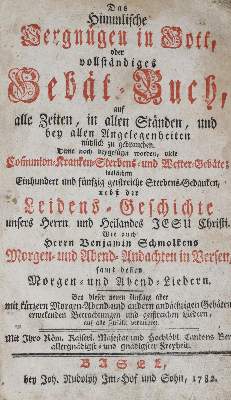 Das
Himmlische
Vergnügen in Gott,
oder
vollständiges
Gebät-Buch,
auf
alle Zeiten, in allen Ständen, und
bey allen Angelegenheiten
nützlich zu gebrauchen.
Deme noch beygefügt worden, viele
Communion-Kranken-Sterbens- und Wetter-Gebäte;
Einhundert und fünfzig geistreiche Sterbens-Gedanken,
nebst der
Leidens-Geschichte
unsers Herrn und Heilandes JESU Christi.
Wie auch
Herrn Benjamin Schmolkens
Morgen- und Abend-Andachten in Versen,
samt dessen
Morgen- und Abend-Liedern.
Bey dieser neuen Auflage aber
mit kürzern Morgen-Abend-und andern andächtigen Gebäten,
erweckenden Betrachtungen und geistreichen Liedern,
auf alle Fälle, vermehret.
Mit Ihro Röm. Kaiserl. Majestät und Hochlöbl. Standes Bern
allergnädigst- und gnädigster Freyheit.
BASEL,
bey Joh. Rudolph Im-Hof und Sohn, 1782.